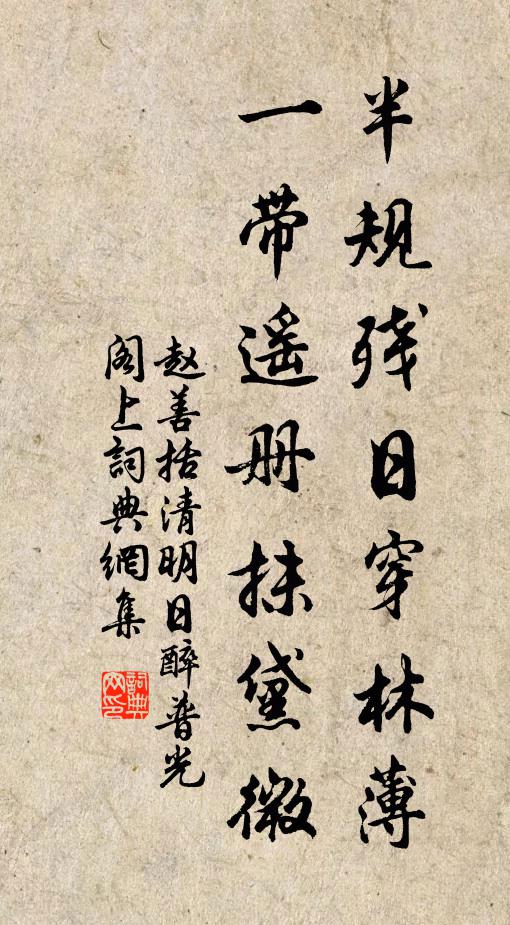 半规残日穿林薄
一带遥册抹黛微
赵善括清明日醉普光
阁上詞典網集
詞典网印